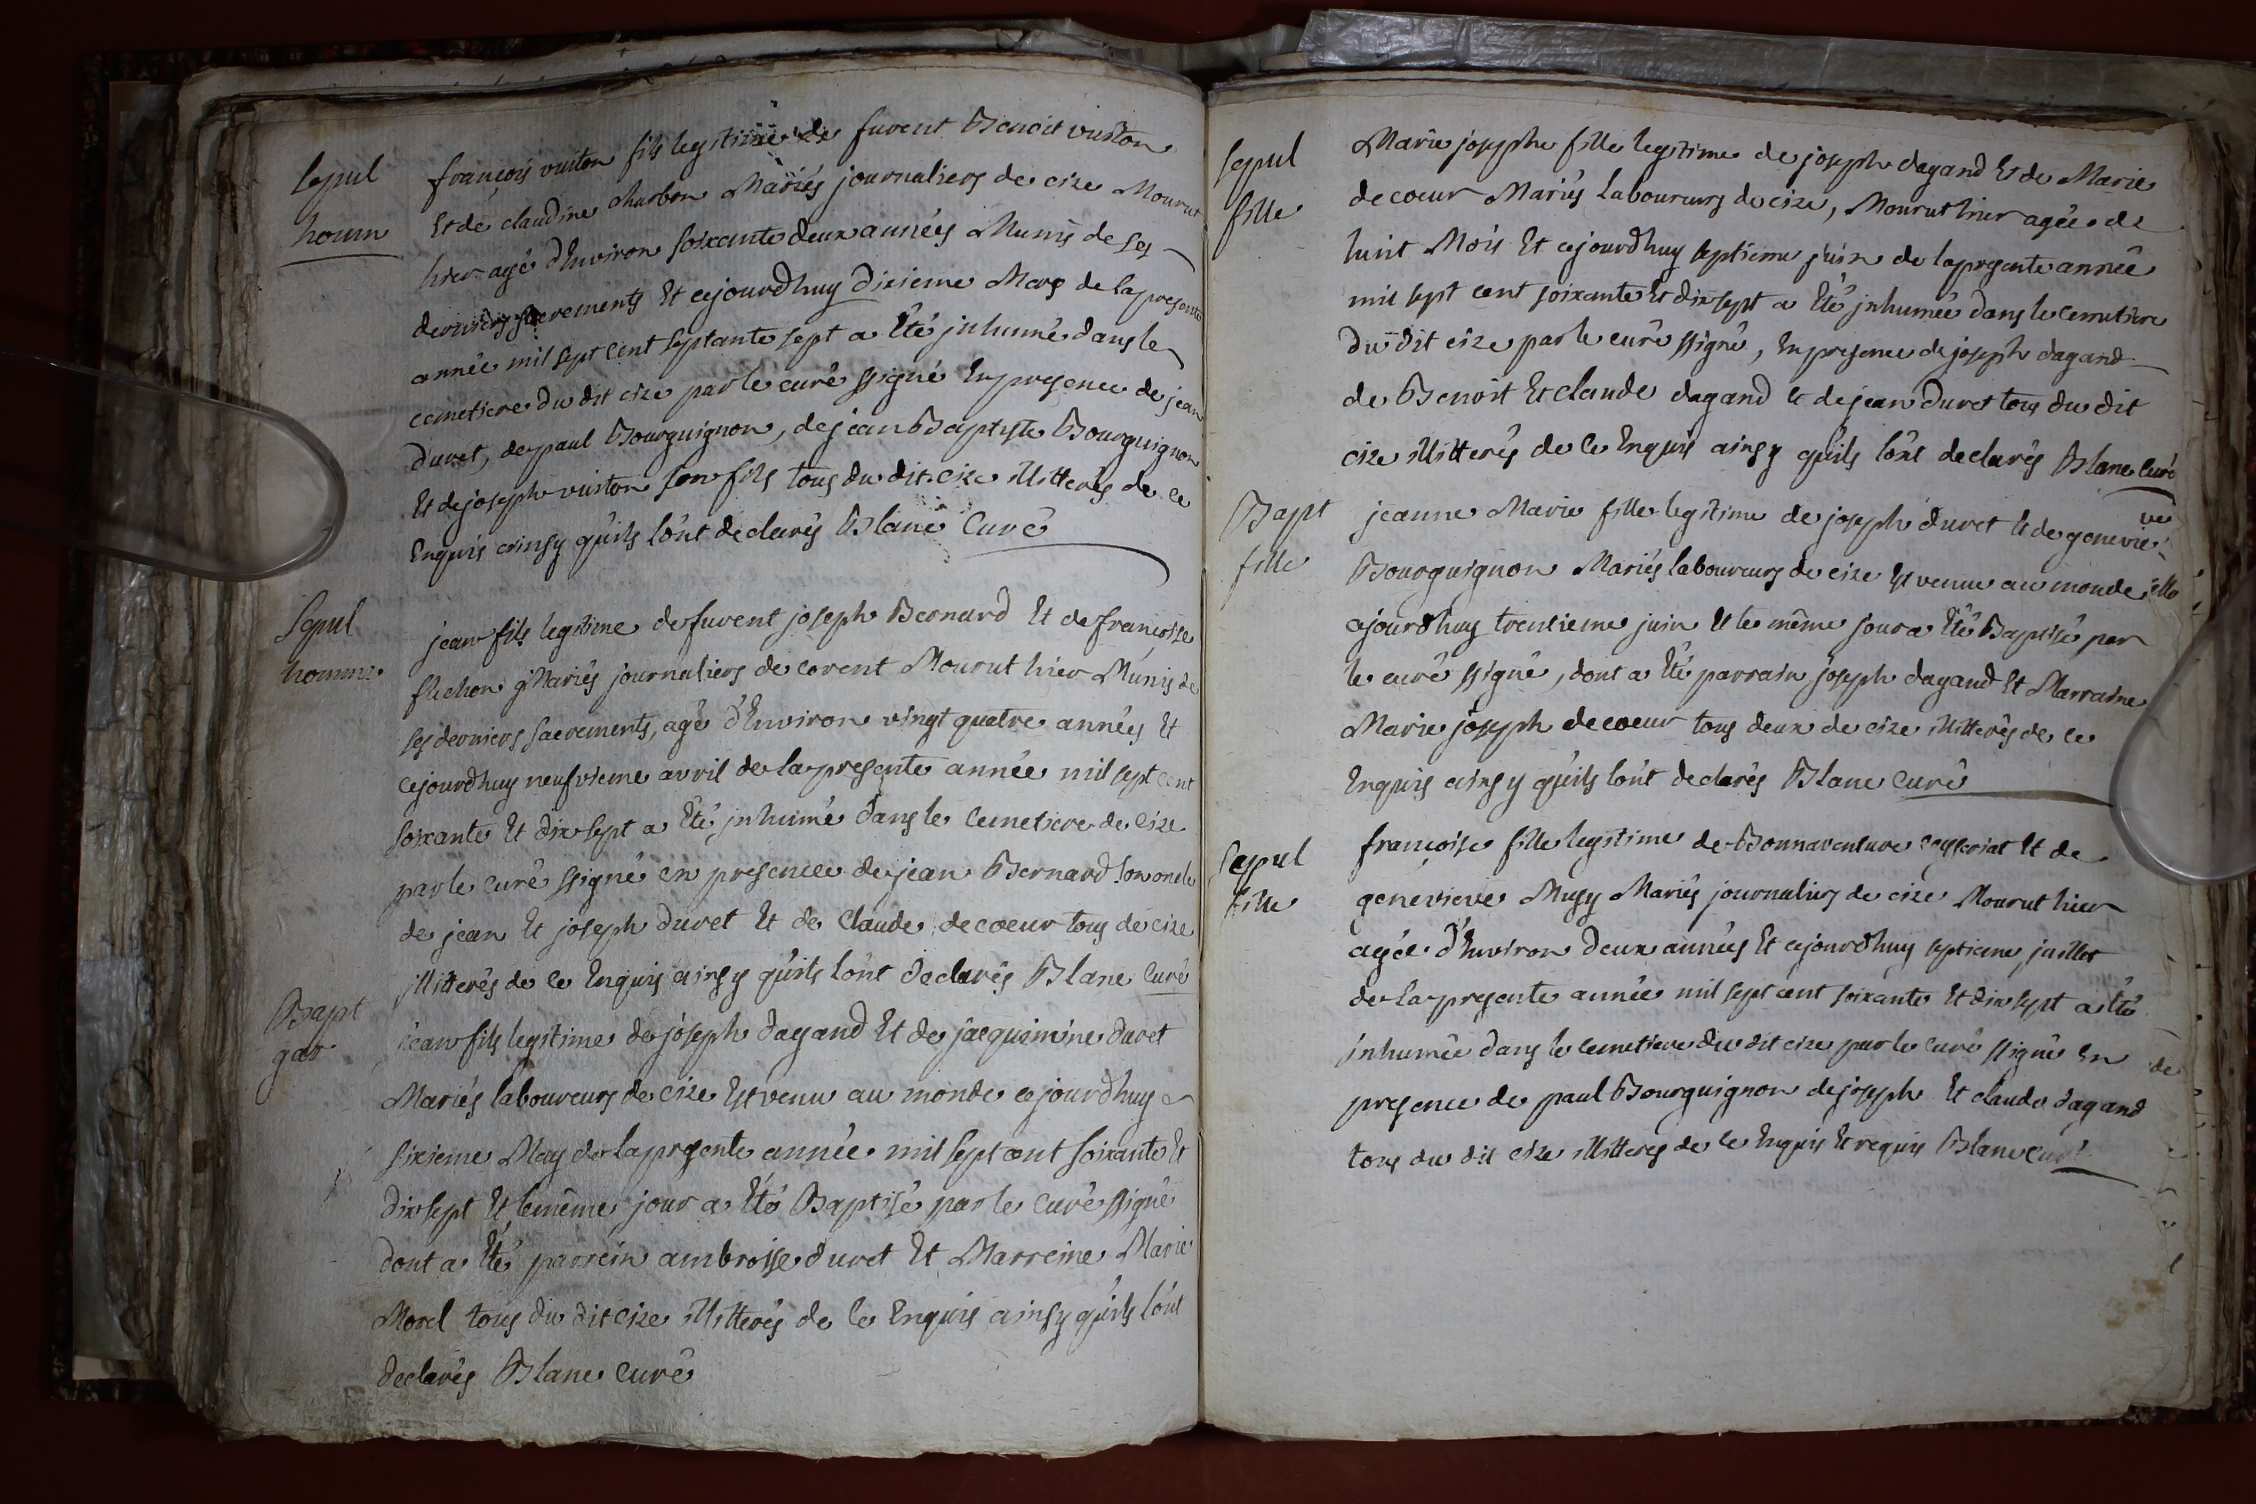 Sepul
homm
françois vuiton fils legitime de furent Benoit vuiton
Et de claudine charbon Mariés journaliers de cize Mourut
hier agé d'Environ soixante deux années Munis de ses
derniers sacrements Et cejourdhuy dixieme Mars de la presente
année mil sept cent septante sept a Eté jnhumé dans le
cemetiere du dit cize par le curé ssigné En presence de jean
duret, de paul Bourguignon, de jean Baptiste Bourguignon
Et de joseph vuiton son fils tous du dit cize illitterés de ce
Enquis ainsy qu'ils l'ont declarés Blanc Curé
Sepul
homme
jean fils legitime de furent joseph Bernard Et de françoise
Mariés journaliers de corent Mourut hier Munis de
ses derniers sacrements, agé d'Environ vingt quatre années Et
cejourdhuy neufvieme avril de la presente année mil sept cent
soixante Et dix sept a Eté jnhumé dans le cemetiere de cize
par le curé ssigné en presence de jean Bernard son oncle
de jean Et joseph duret Et de Claude decoeur tous de cize
jllitterés de ce Enquis ainsy qu'ils l'ont declarés Blanc Curé
Bapt
gar
jean fils legitime de joseph dagand Et de jacquemine duret
Mariés laboureurs de cize Est venu au monde cejourdhuy
sixieme May de la presente année mil sept cent soixante Et
dix sept Et le même jour a Eté Baptisé par le curé ssigné
dont a Eté parrein ambroise duret Et Marreine Marie
Morel tous du dit cize illitterés de ce Enquis ainsy qu'ils l'ont
declarés Blanc curé
sepul
fille
Marie josephe fille legitime de joseph dagand Et de Marie
decoeur Mariés Laboureurs de cize, Mourut hier agée de
huit Mois Et cejourdhuy septieme juin de la presente année
mil sept cent soixante Et dix sept a Eté jnhumée dans le cemetiere
du dit cize par le curé ssigné, En presence de joseph dagand
de Benoit Et claude dagand Et de jean duret tous du dit
cize illitterés de ce Enquis ainsy qu'ils l'ont declarés Blanc Curé
Bapt
fille
jeanne Marie fille legitime de joseph duret Et de genevieve
Bourguignon Mariés laboureurs de cize Est venue au monde
cejourdhuy trentieme juin Et le même jour a Eté Baptisé par
le curé ssigné, dont a Eté parrain joseph dagand Et Marraine
Marie joseph decoeur tous deux de cize illitterés de ce
Enquis ainsy qu'ils l'ont declarés Blanc curé
Sepul
fille
françoise fille legitime de Bonnaventure ceyseriat Et de
genevieve Musy Mariés journaliers de cize Mourut hier
agée d'Environ deux années Et cejourdhuy septieme juillet
de la presente année mil sept cent soixante Et dix sept a Eté
inhumée dans le cemetiere du dit cize par le curé ssigné En
presence de paul Bourguignon de joseph Et claude dagand
tous du dit cize illitterés de ce Enquis Et requis Blanc curé